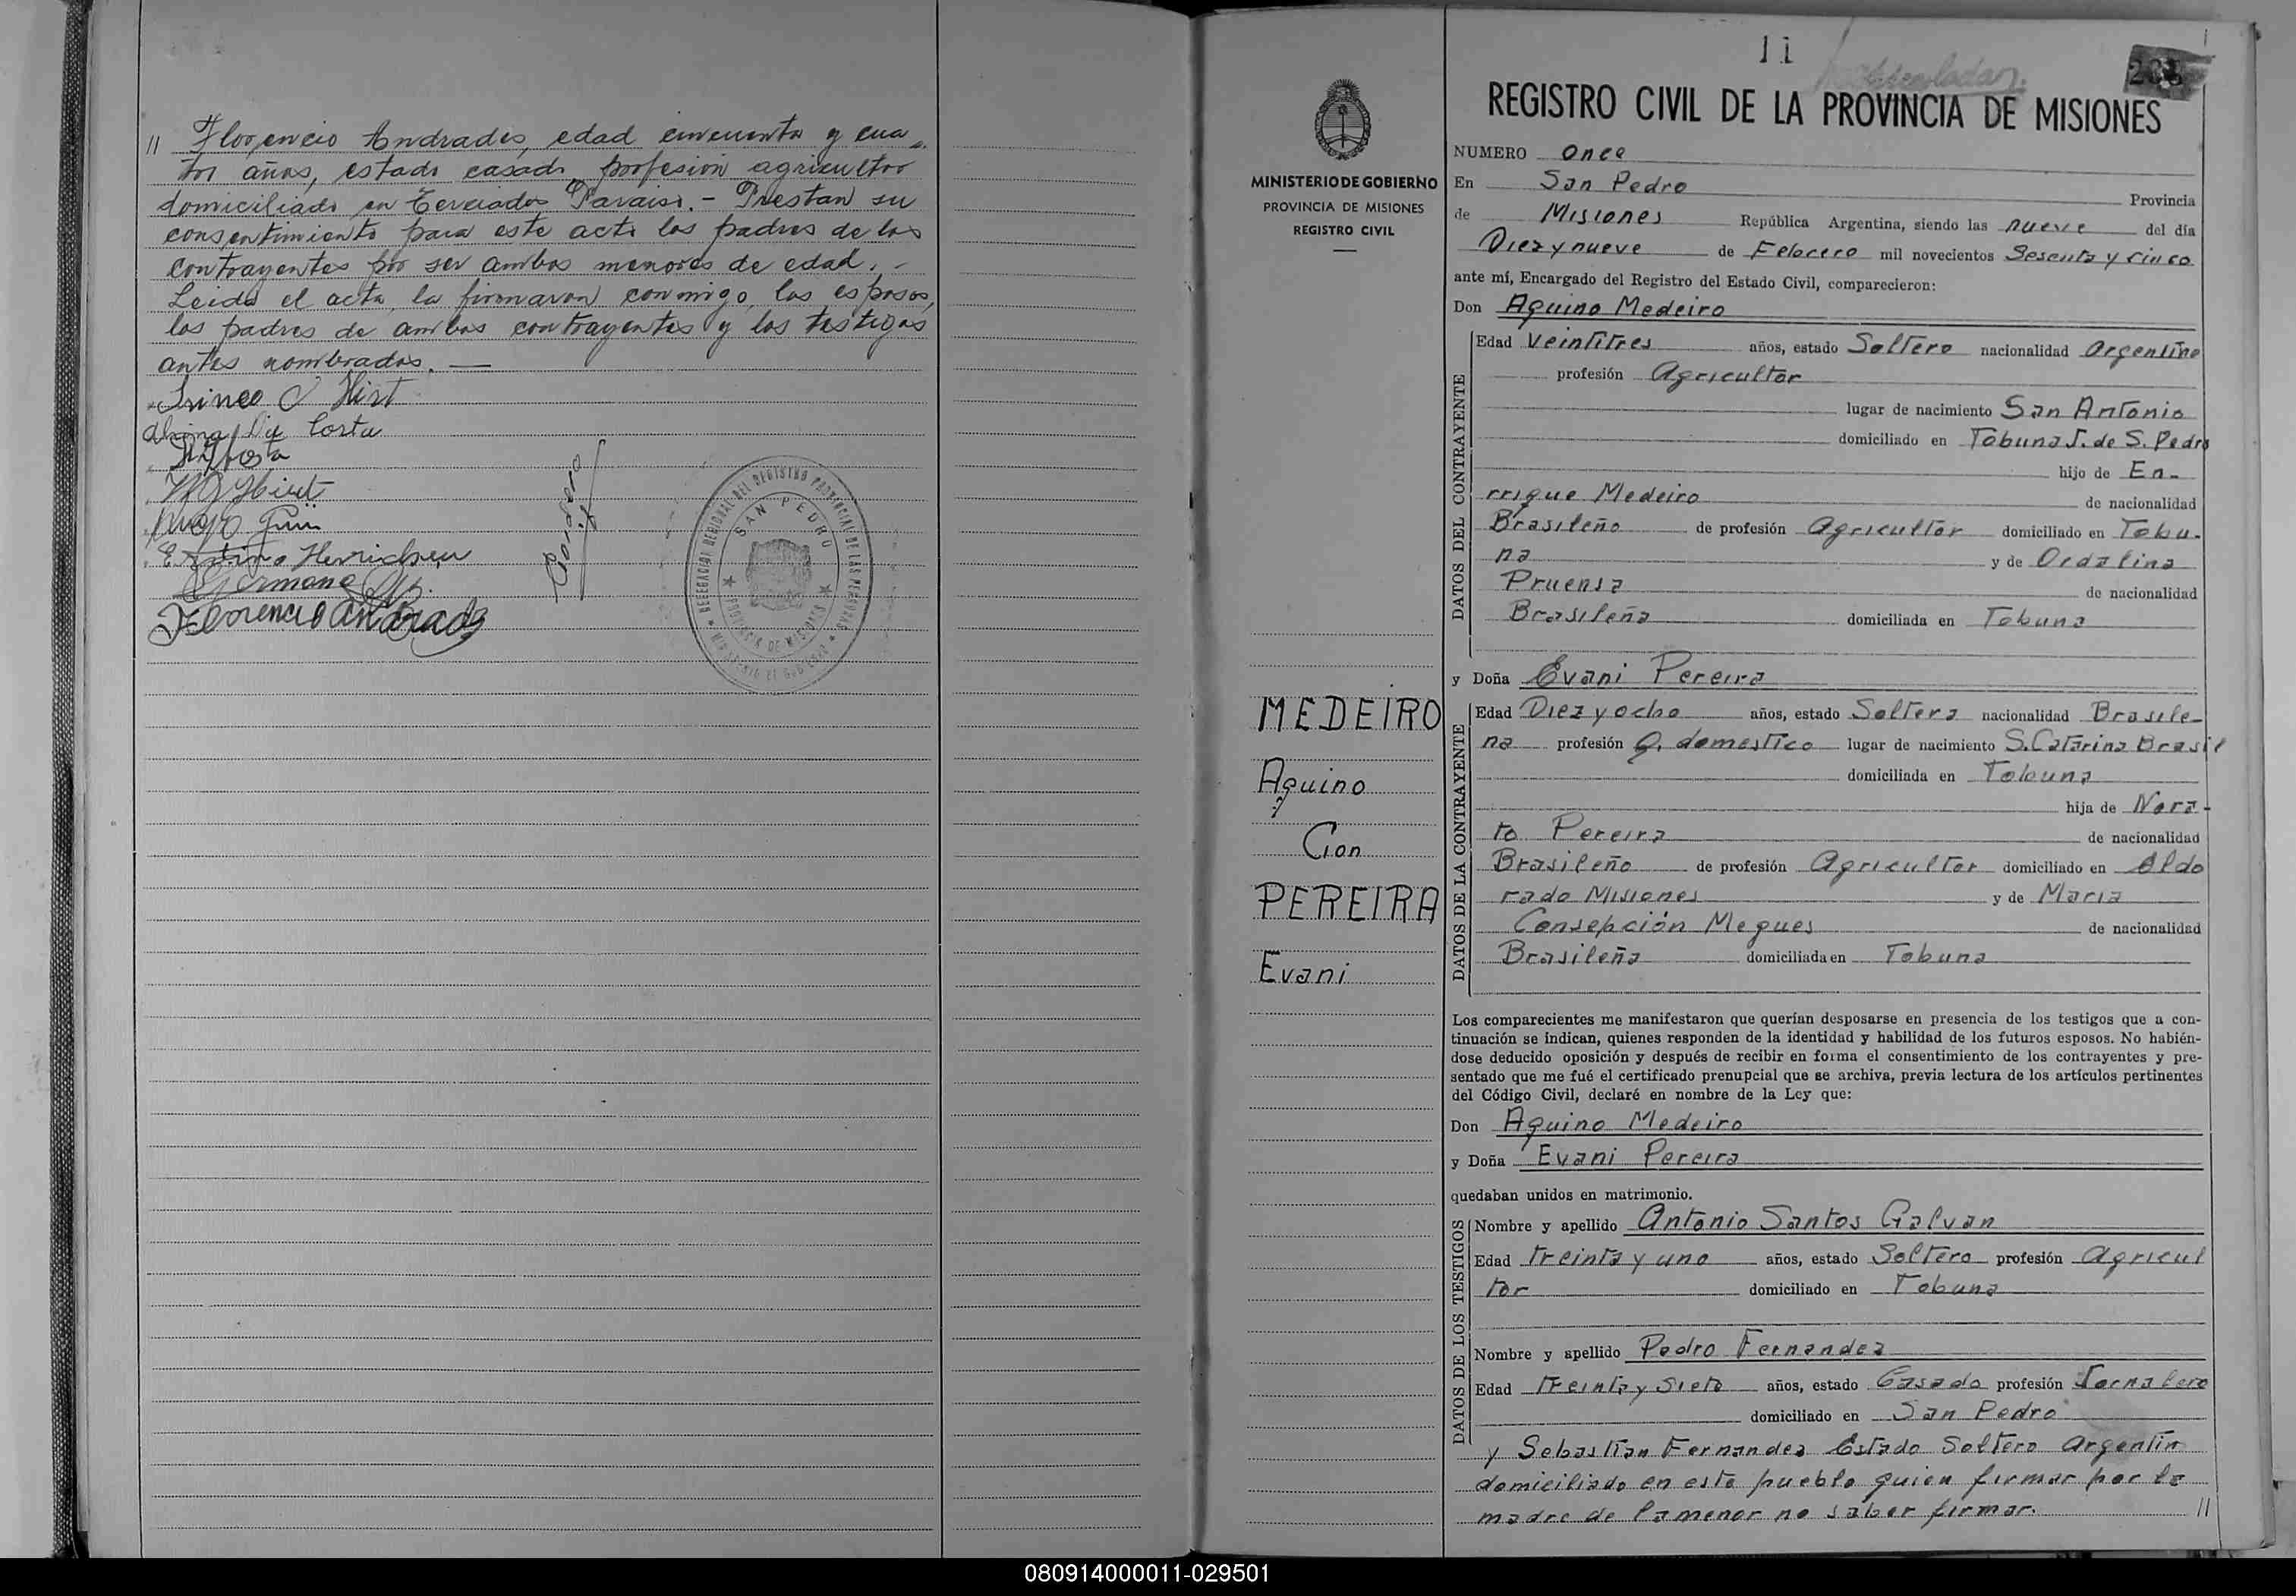 // Florencio Andrades, edad cincuenta y cua-
tro años, estado casado, profesión agricultor
domiciliado en Terciados Paraiso.- Prestan su
consentimiento para este acto los padres de los
contrayentes por ser ambos menores de edad. -
Leida el acta, la firmaron conmigo, los esposos,
los padres de ambos contrayentes y los testigos
antes nombrados. —
Irineo Hirt
Da Costa
Henrichsen
Germano
Florencio Andrades
SAN PEDRO
PROVINCIA DE MISIONES
11
MINISTERIO DE GOBIERNO
PROVINCIA DE MISIONES
REGISTRO CIVIL
MEDEIRO
Aquino
Con
PEREIRA
Evani
REGISTRO CIVIL DE LA PROVINCIA DE MISIONES
NUMERO once
En San Pedro Provincia
de Misiones República Argentina, siendo las nueve del día
Diez y nueve de Febrero mil novecientos Sesenta y cinco
ante mí, Encargado del Registro del Estado Civil, comparecieron:
Don Aquino Medeiro
DATOS DEL CONTRAYENTE
Edad Veintitres años, estado Soltero nacionalidad Argentino
profesión Agricultor
lugar de nacimiento San Antonio
domiciliado en Tobuna J. de S. Pedro
hijo de En-
rrique Medeiro de nacionalidad
Brasileño de profesión Agricultor domiciliado en Tobu-
na y de Ordalina
Pruensa de nacionalidad
Brasileña domiciliada en Tobuna
y Doña Evani Pereira
DATOS DE LA CONTRAYENTE
Edad Diez y ocho años, estado Soltera nacionalidad Brasile-
na profesión Q. domestico lugar de nacimiento S. Catarina Brasil
domiciliada en Tobuna
hija de Nora-
to Pereira de nacionalidad
Brasileño de profesión Agricultor domiciliado en Eldo
rado Misiones y de Maria
Consepción Megues de nacionalidad
Brasileña domiciliada en Tobuna
Los comparecientes me manifestaron que querían desposarse en presencia de los testigos que a con-
tinuación se indican, quienes responden de la identidad y habilidad de los futuros esposos. No habién-
dose deducido oposición y después de recibir en forma el consentimiento de los contrayentes y pre-
sentado que me fué el certificado prenupcial que se archiva, previa lectura de los artículos pertinentes
del Código Civil, declaré en nombre de la Ley que:
Don Aquino Medeiro
y Doña Evani Pereira
quedaban unidos en matrimonio.
DATOS DE LOS TESTIGOS
Nombre y apellido Antonio Santos Galvan
Edad treinta y uno años, estado Soltero profesión Agricul
tor domiciliado en Tobuna
Nombre y apellido Pedro Fernandez
Edad treinta y siete años, estado Casado profesión Jornalero
domiciliado en San Pedro
y Sebastian Fernandez Estado Soltero argentin
domiciliado en este pueblo quien firmar por la
madre de la menor no saber firmar. //
080914000011-029501